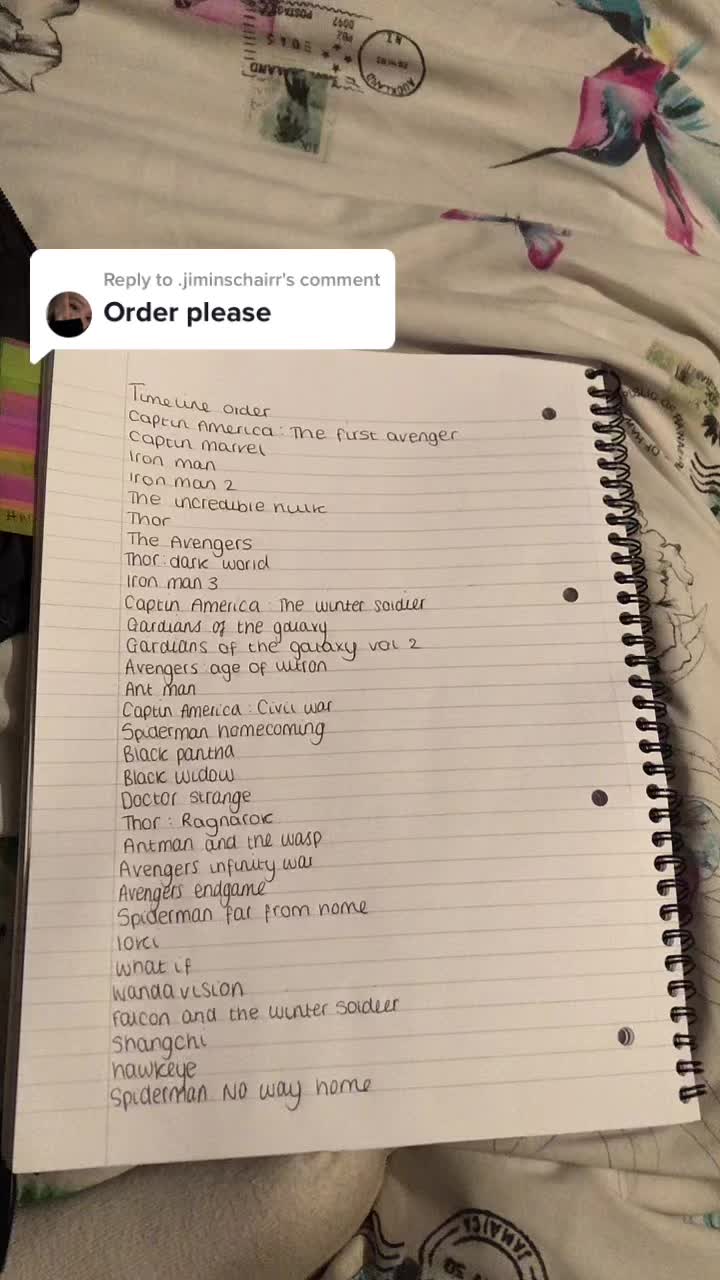 POSTAGE
AUCKLAND
N.Z.
Reply to .jiminschairr's comment
Order please
Timeline order
Captin America: The first avenger
Captin marvel
Iron man
Iron man 2
The incredible hulk
Thor
The Avengers
Thor: dark world
Iron man 3
Captin America: The winter soldier
Gardians of the galaxy
Gardians of the galaxy vol 2
Avengers: age of ultron
Ant man
Captin America: Civil war
Spiderman homecoming
Black pantha
Black widow
Doctor strange
Thor: Ragnarok
Antman and the wasp
Avengers infinity war
Avengers endgame
Spiderman far from home
loki
what if
wandavision
falcon and the winter soldier
shangchi
hawkeye
Spiderman No way home
JAMAICA